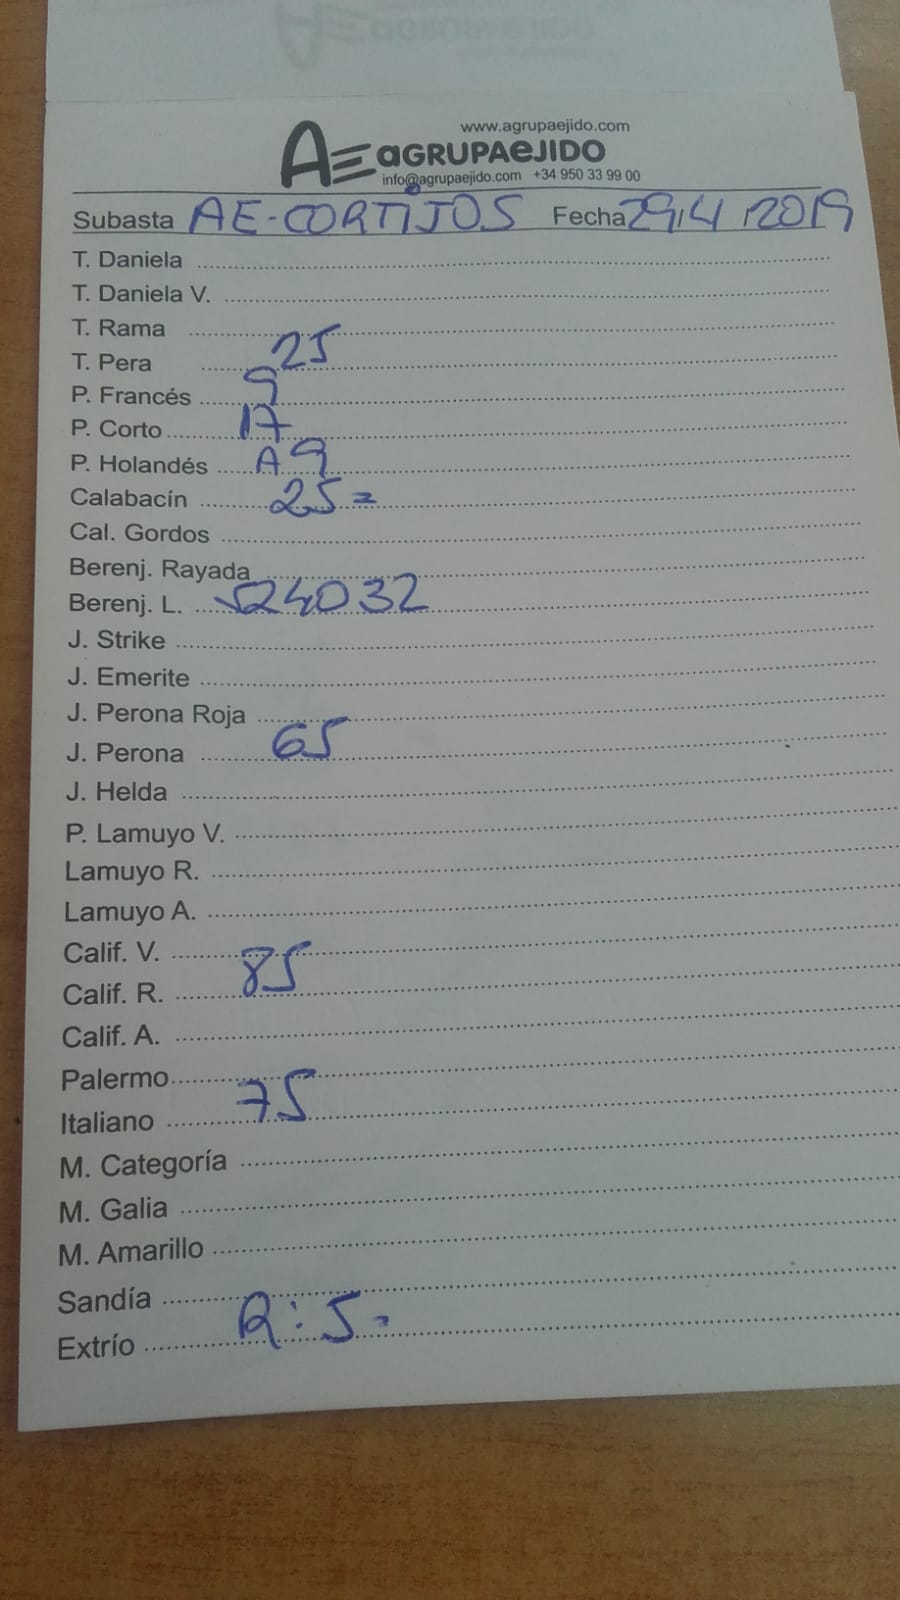 www.agrupaejido.com
AE aGRUPAeJIDO
info@agrupaejido.com +34 950 33 99 00
Subasta AE-CORTIJOS Fecha 29/4/2019
T. Daniela
T. Daniela V.
T. Rama
T. Pera 25
P. Francés 9
P. Corto 17
P. Holandés A 9
Calabacín 25=
Cal. Gordos
Berenj. Rayada
Berenj. L. 4032
J. Strike
J. Emerite
J. Perona Roja
J. Perona 65
J. Helda
P. Lamuyo V.
Lamuyo R.
Lamuyo A.
Calif. V.
Calif. R. 85
Calif. A.
Palermo
Italiano 75
M. Categoría
M. Galia
M. Amarillo
Sandía
Extrío R: 5-